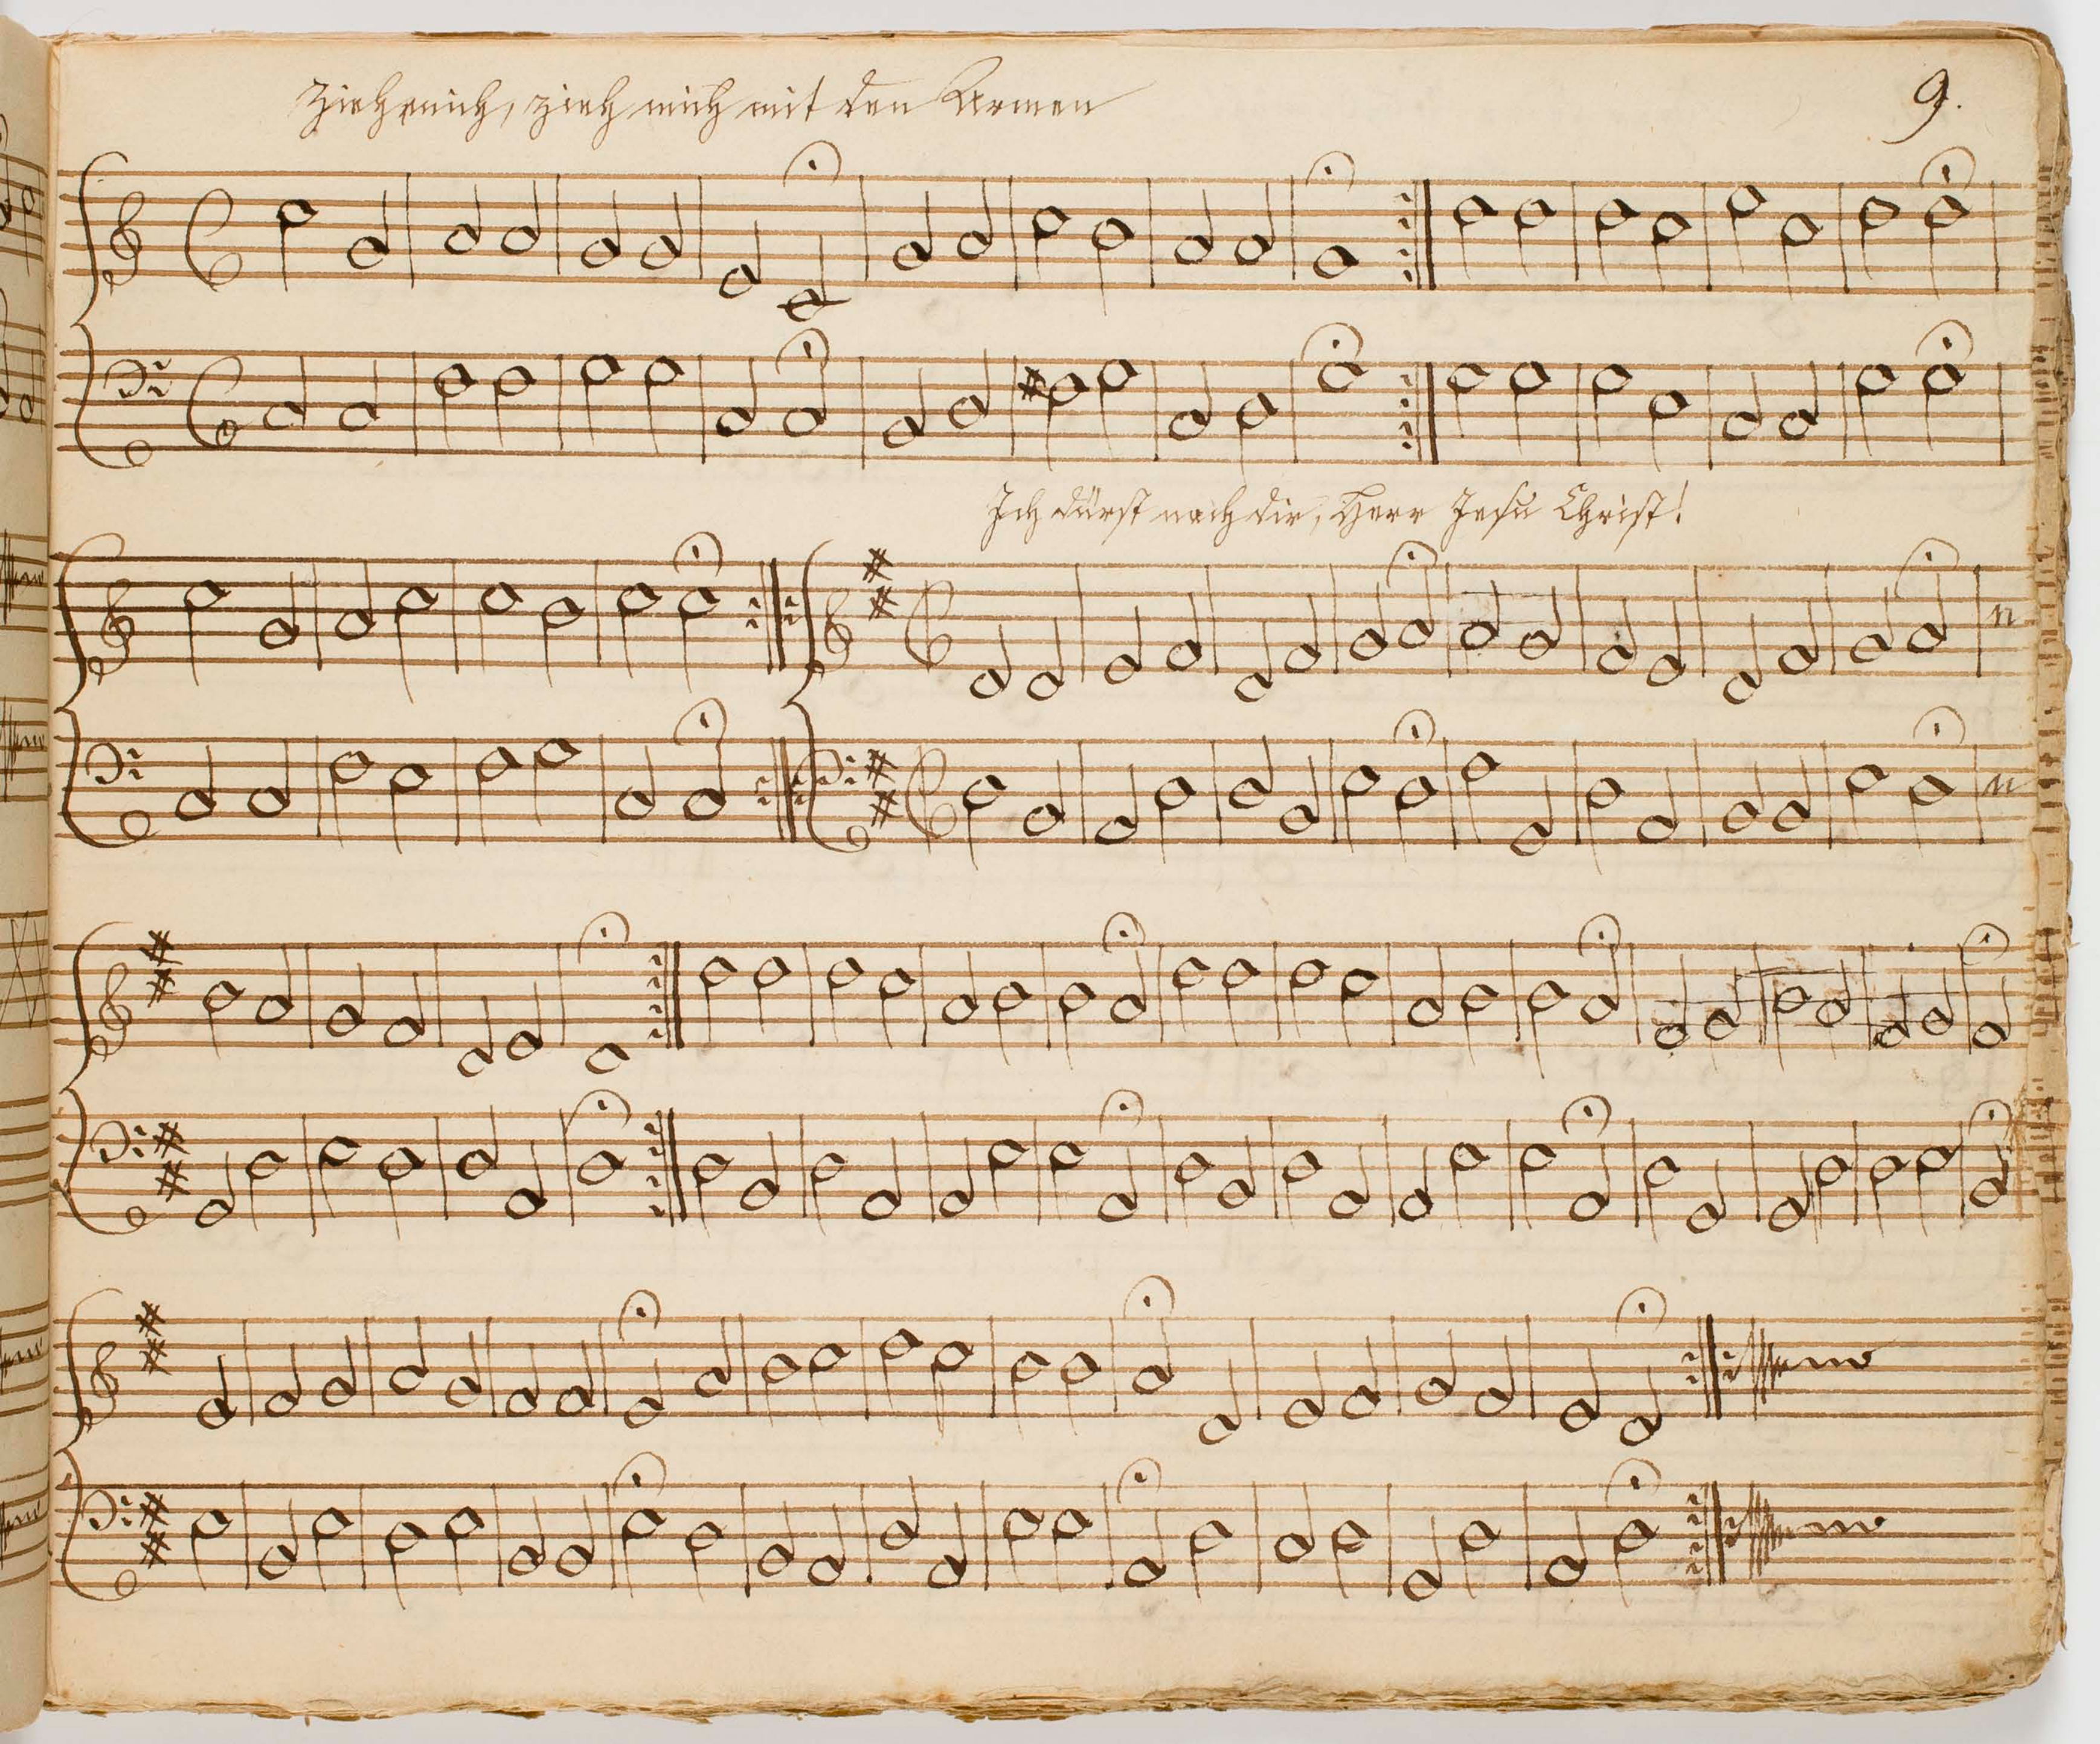 9.
Zieh mich, zieh mich mit den Armen
Ich dürst nach dir, Herr Jesu Christ!